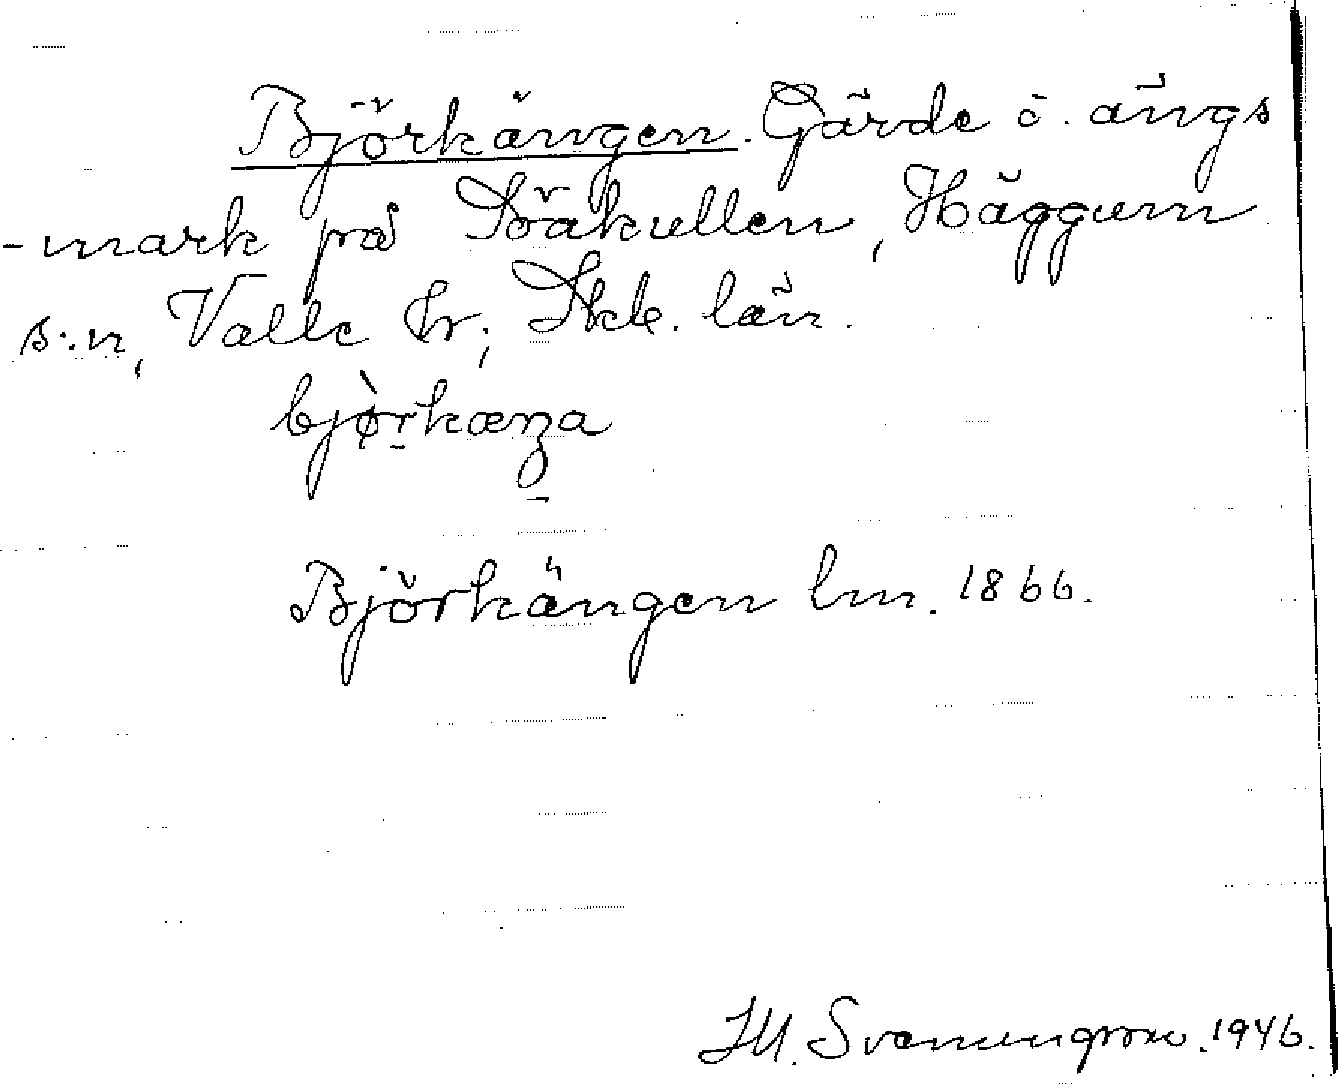 Björkängen. Gärde o. ängs
-mark på Svåkullen, Häggum
s:n, Valle hr; Skb. län.
bjørkæŋa
Björkängen lm. 1866.
1946.